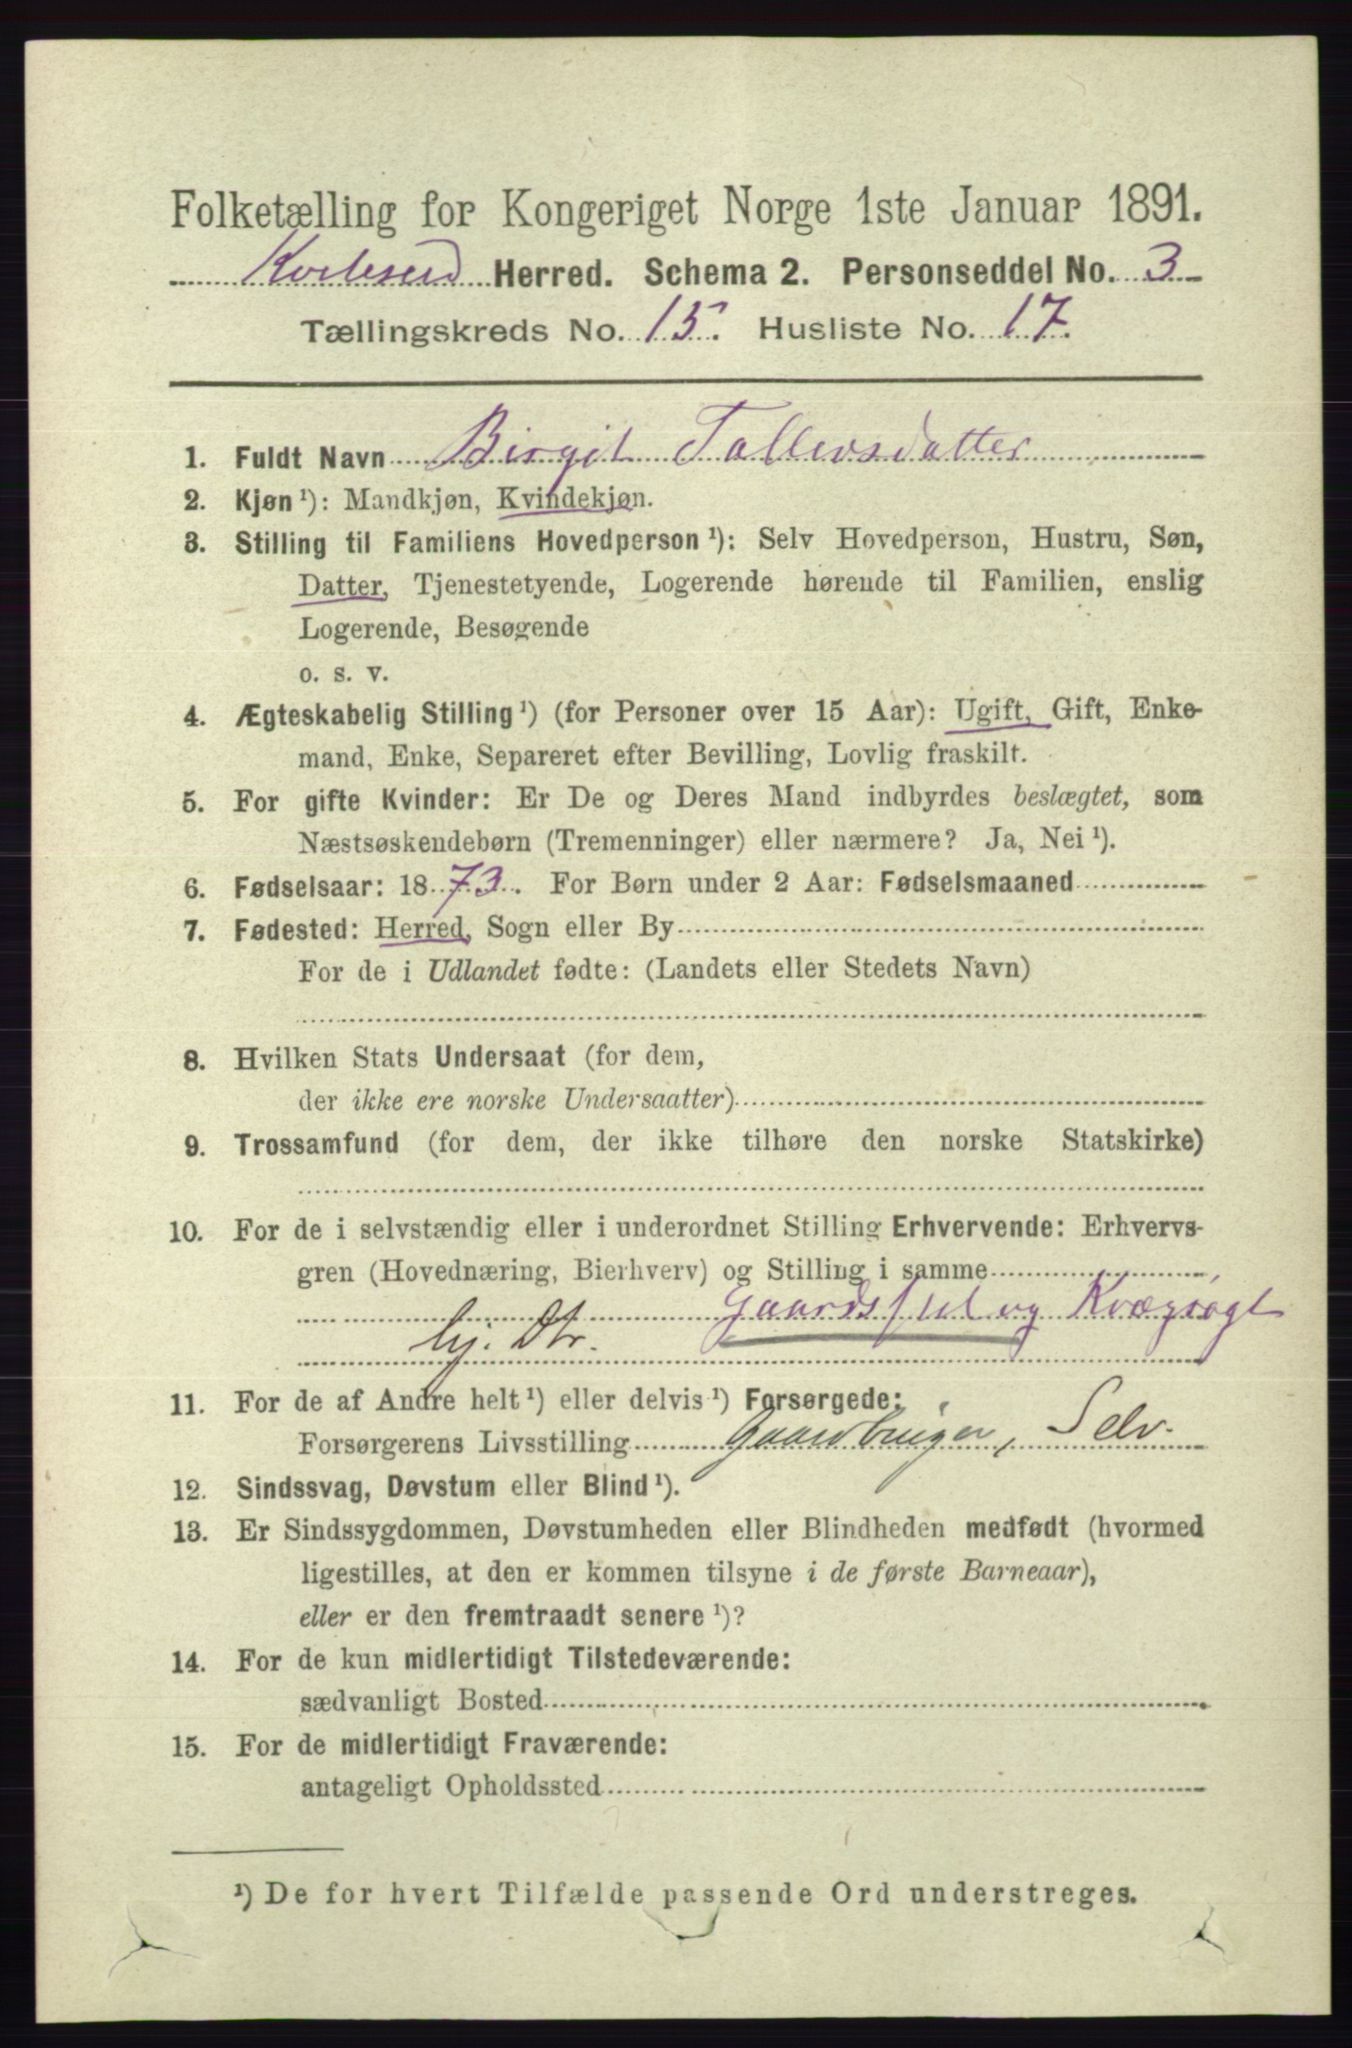 Folketælling for Kongeriget Norge 1ste Januar 1891.
Kviteseid Herred. Schema 2. Personseddel No. 3
Tællingskreds No. 15. Husliste No. 17.
1. Fuldt Navn Birgit Tallevsdatter
2. Kjøn ¹): Mandkjøn, Kvindekjøn.
3. Stilling til Familiens Hovedperson ¹): Selv Hovedperson, Hustru, Søn,
Datter, Tjenestetyende, Logerende hørende til Familien, enslig
Logerende, Besøgende
o. s. v.
4. Ægteskabelig Stilling ¹) (for Personer over 15 Aar): Ugift, Gift, Enke-
mand, Enke, Separeret efter Bevilling, Lovlig fraskilt.
5. For gifte Kvinder: Er De og Deres Mand indbyrdes beslægtet, som
Næstsøskendebørn (Tremenninger) eller nærmere? Ja, Nei ¹).
6. Fødselsaar: 1873. For Børn under 2 Aar: Fødselsmaaned
7. Fødested: Herred, Sogn eller By
For de i Udlandet fødte: (Landets eller Stedets Navn)
8. Hvilken Stats Undersaat (for dem,
der ikke ere norske Undersaatter)
9. Trossamfund (for dem, der ikke tilhøre den norske Statskirke)
10. For de i selvstændig eller i underordnet Stilling Erhvervende: Erhvervs-
gren (Hovednæring, Bierhverv) og Stilling i samme
Gaardsstel og Kvægrøgt
hj. Dtr.
11. For de af Andre helt ¹) eller delvis ¹) Forsørgede:
Forsørgerens Livsstilling Gaardbruger, Selv.
12. Sindssvag, Døvstum eller Blind ¹).
13. Er Sindssygdommen, Døvstumheden eller Blindheden medfødt (hvormed
ligestilles, at den er kommen tilsyne i de første Barneaar),
eller er den fremtraadt senere ¹)?
14. For de kun midlertidigt Tilstedeværende:
sædvanligt Bosted
15. For de midlertidigt Fraværende:
antageligt Opholdssted
¹) De for hvert Tilfælde passende Ord understreges.